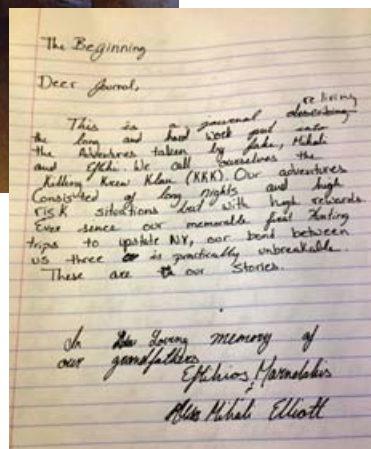 The Beginning
Deer Journal,
re living
This is a journal describing
the long and hard work put into
the Adventures taken by Jake, Mihali
and Efthi. We call ourselves the
Killing Krew Klan (KKK). Our adventures
Consisted of long nights and high
risk situations but with high rewards.
Ever since our memorable first Hunting
trips to upstate NY, our bond between
us three is practically unbreakable.
These are our Stories.
In Loving memory of
our grandfathers
Eftihios Marnelakis
Mihali Elliott